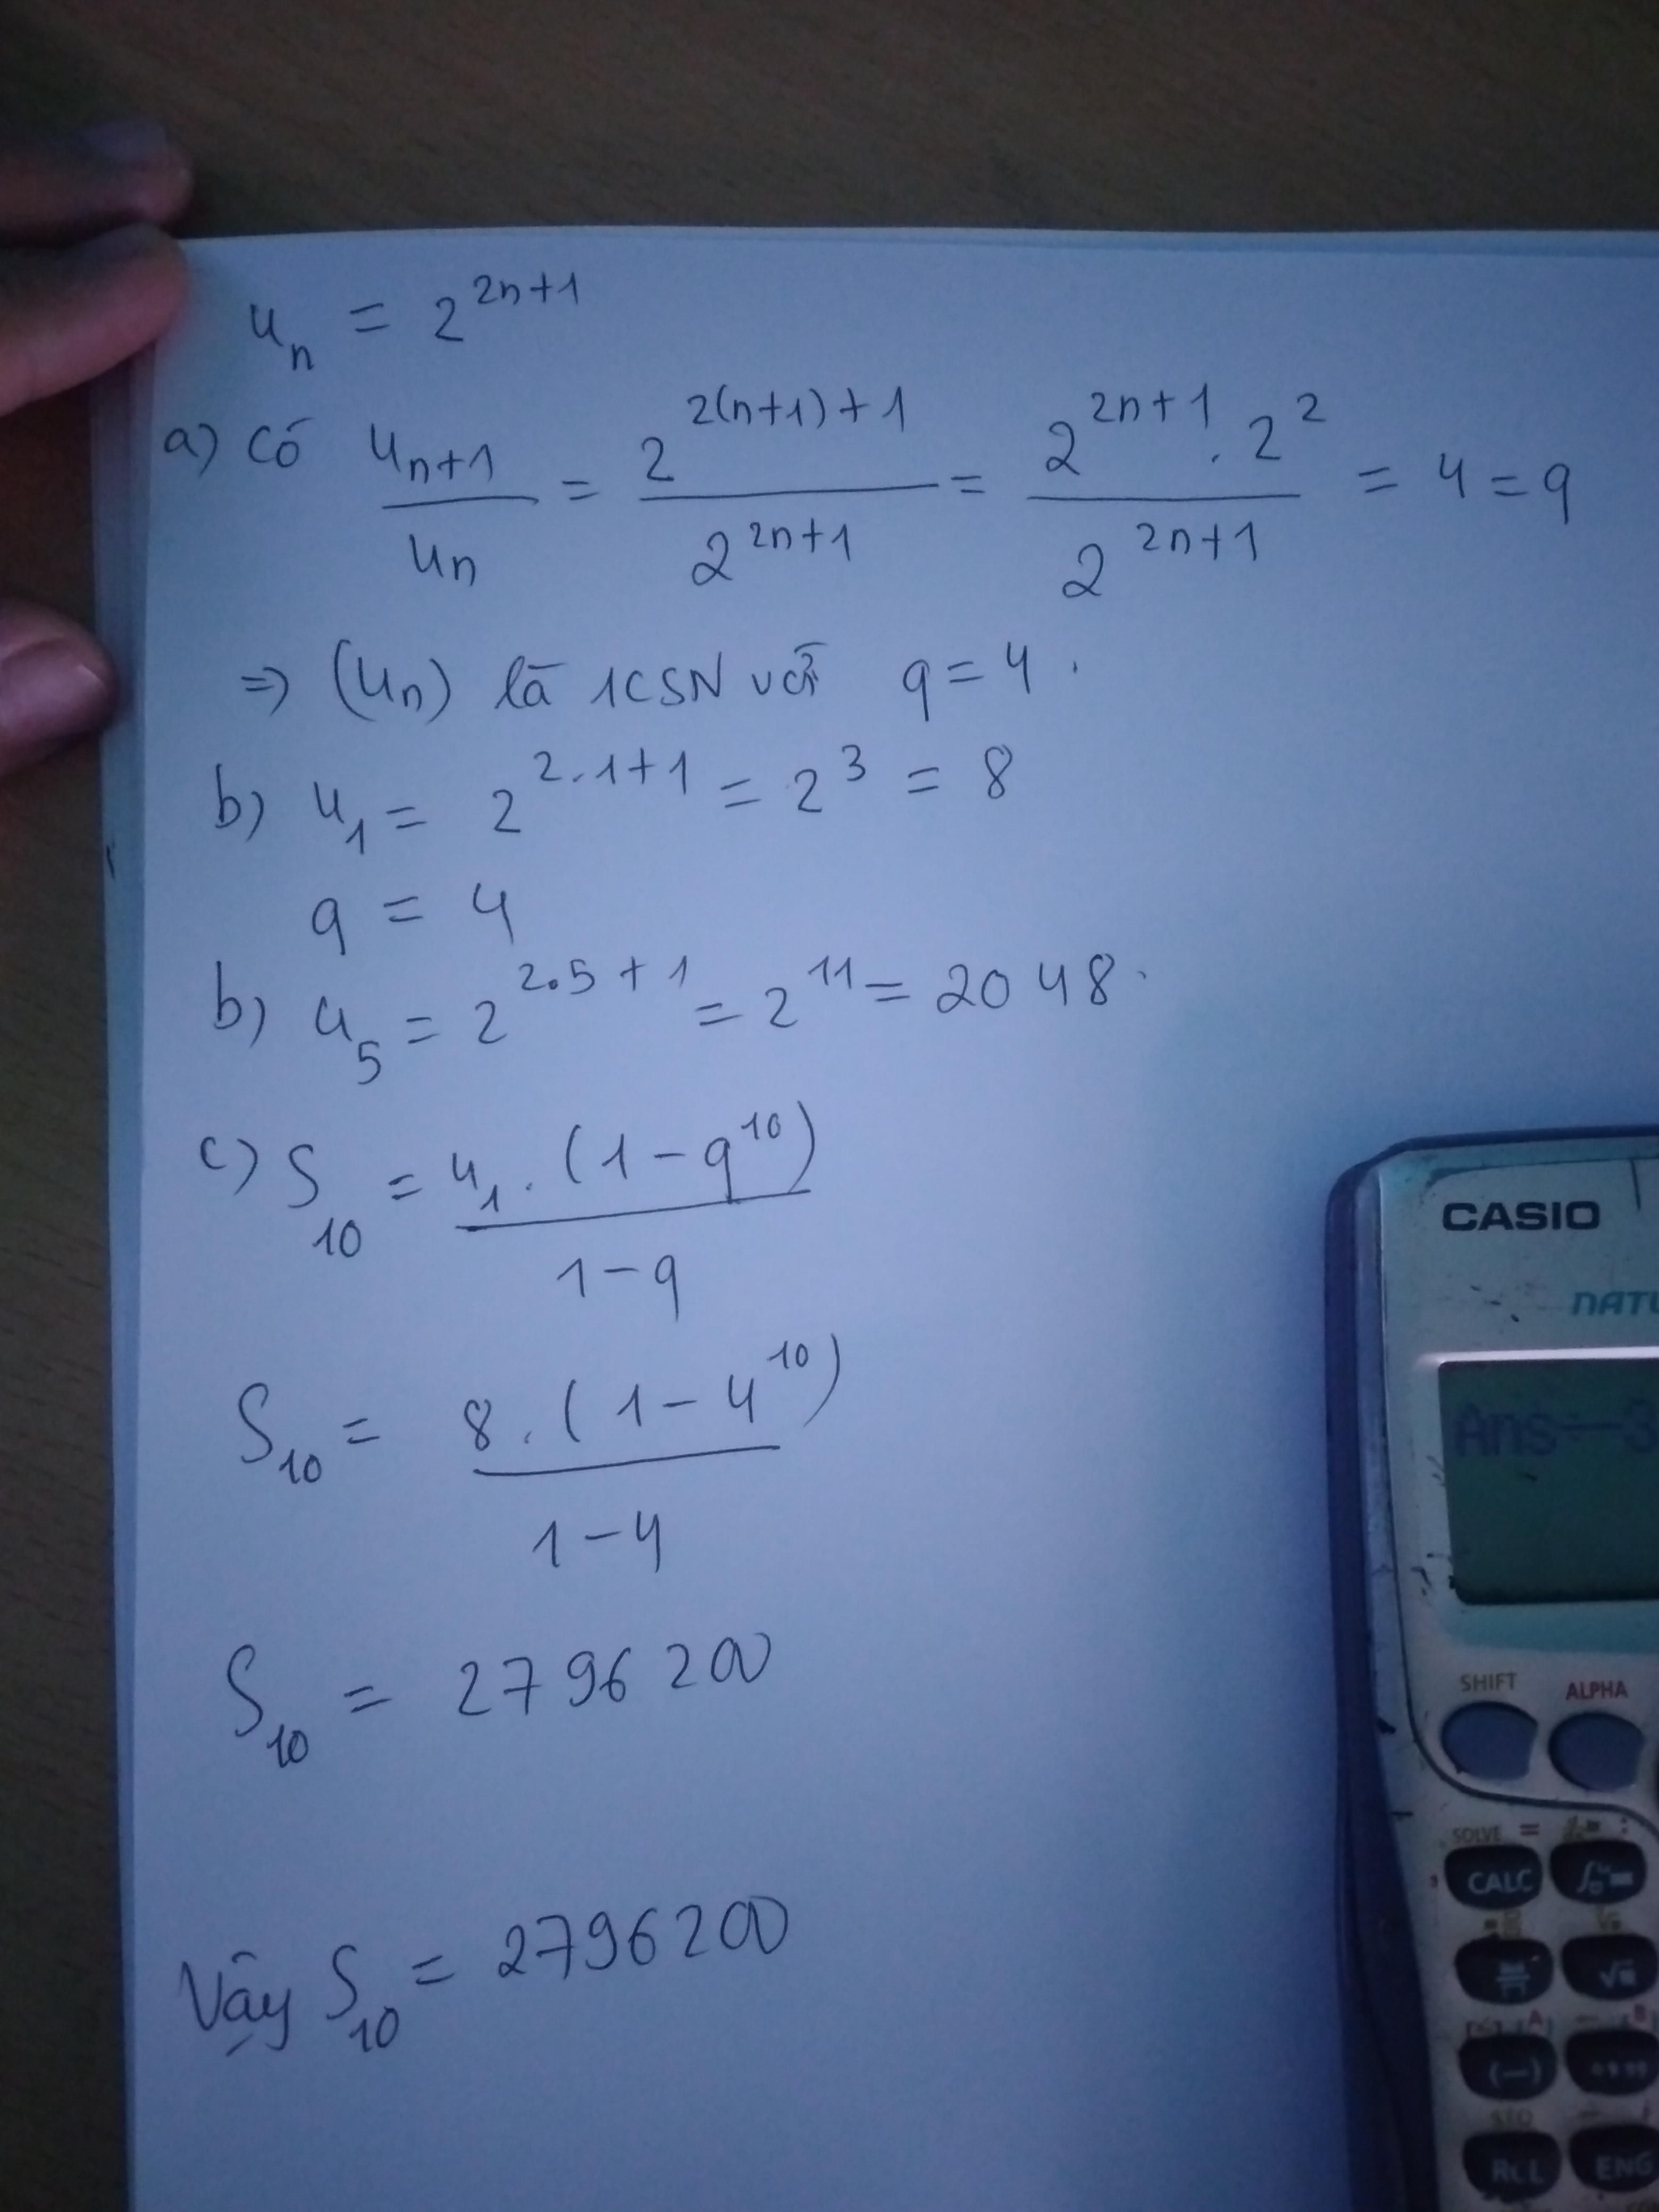 uₙ = 2^(2n+1)
a) Có uₙ₊₁/uₙ = 2^(2(n+1)+1)/2^(2n+1) = 2^(2n+1) . 2^2/2^(2n+1) = 4 = q
⇒ (uₙ) là 1 CSN với q = 4.
b) u₁ = 2^(2.1+1) = 2^3 = 8
q = 4
b) u₅ = 2^(2.5+1) = 2^11 = 2048.
c) S₁₀ = u₁ . (1 - q^10)/1 - q
S₁₀ = 8 . (1 - 4^10)/1 - 4
S₁₀ = 2796200
Vậy S₁₀ = 2796200
CASIO
Ans÷-3
SHIFT ALPHA
SOLVE = :
CALC
(-)
RCL ENG